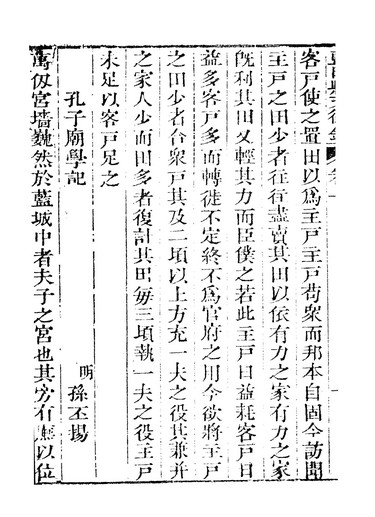 客戶使之置田以爲主戶主戶苟衆而邦本自固今訪聞
主戶之田少者往往盡賣其田以依有力之家有力之家
旣利其田又輕其力而臣僕之若此主戶日益耗客戶日
益多客戶多而轉徙不定終不爲官府之用今欲將主戶
之田少者合衆戶共及二項以上方充一夫之役其兼并
之家人少而田多者復計其田每三項執一夫之役主戶
未足以客戶足之
孔子廟學記
明 孫丕揚
萬仭宮墻巍然於藍城中者夫子之宮也其旁有廡以位